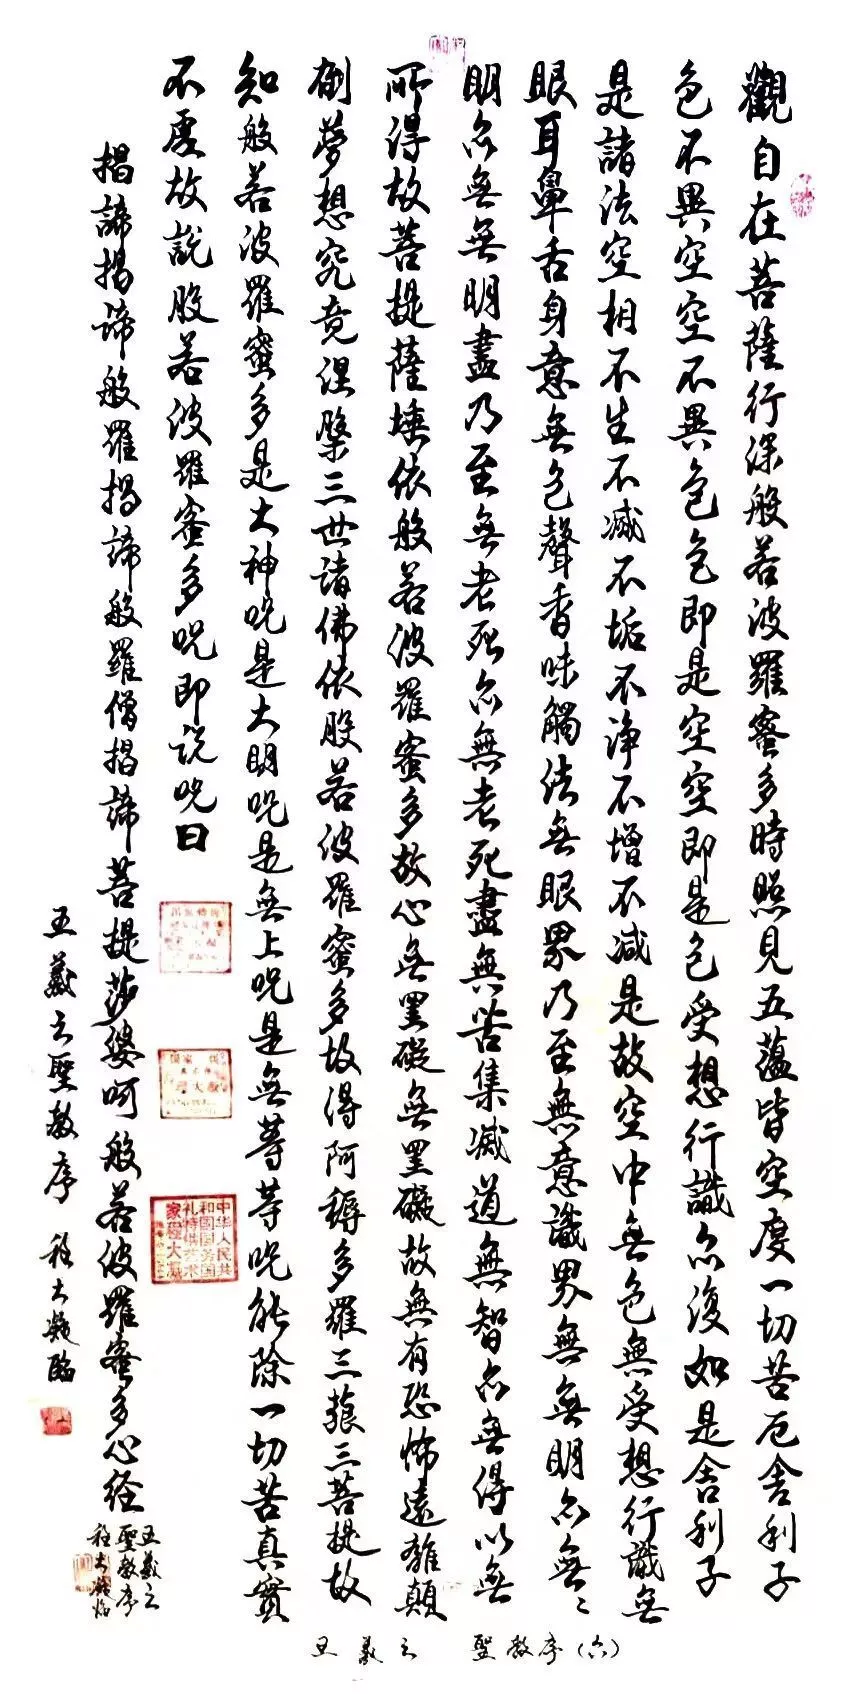 觀自在菩薩行深般若波羅蜜多時照見五蘊皆空度一切苦厄舍利子
色不異空空不異色色即是空空即是色受想行識亦復如是舍利子
是諸法空相不生不滅不垢不淨不增不減是故空中無色無受想行識無
眼耳鼻舌身意無色聲香味觸法無眼界乃至無意識界無無明亦無〻
明亦無無明盡乃至無老死亦無老死盡無苦集滅道無智亦無得以無
所得故菩提薩埵依般若波羅蜜多故心無罣礙無罣礙故無有恐怖遠離顛
倒夢想究竟涅槃三世諸佛依般若波羅蜜多故得阿耨多羅三藐三菩提故
知般若波羅蜜多是大神咒是大明咒是無上咒是無等等咒能除一切苦真實
不虛故說般若波羅蜜多咒即說咒曰
揭諦揭諦般羅揭諦般羅僧揭諦菩提莎婆呵般若波羅蜜多心经
王羲之聖教序 程大凝臨
中华人民共
和國国务国
礼特供艺术
家程大凝
王羲之
聖教序
王羲之 聖教序(六)